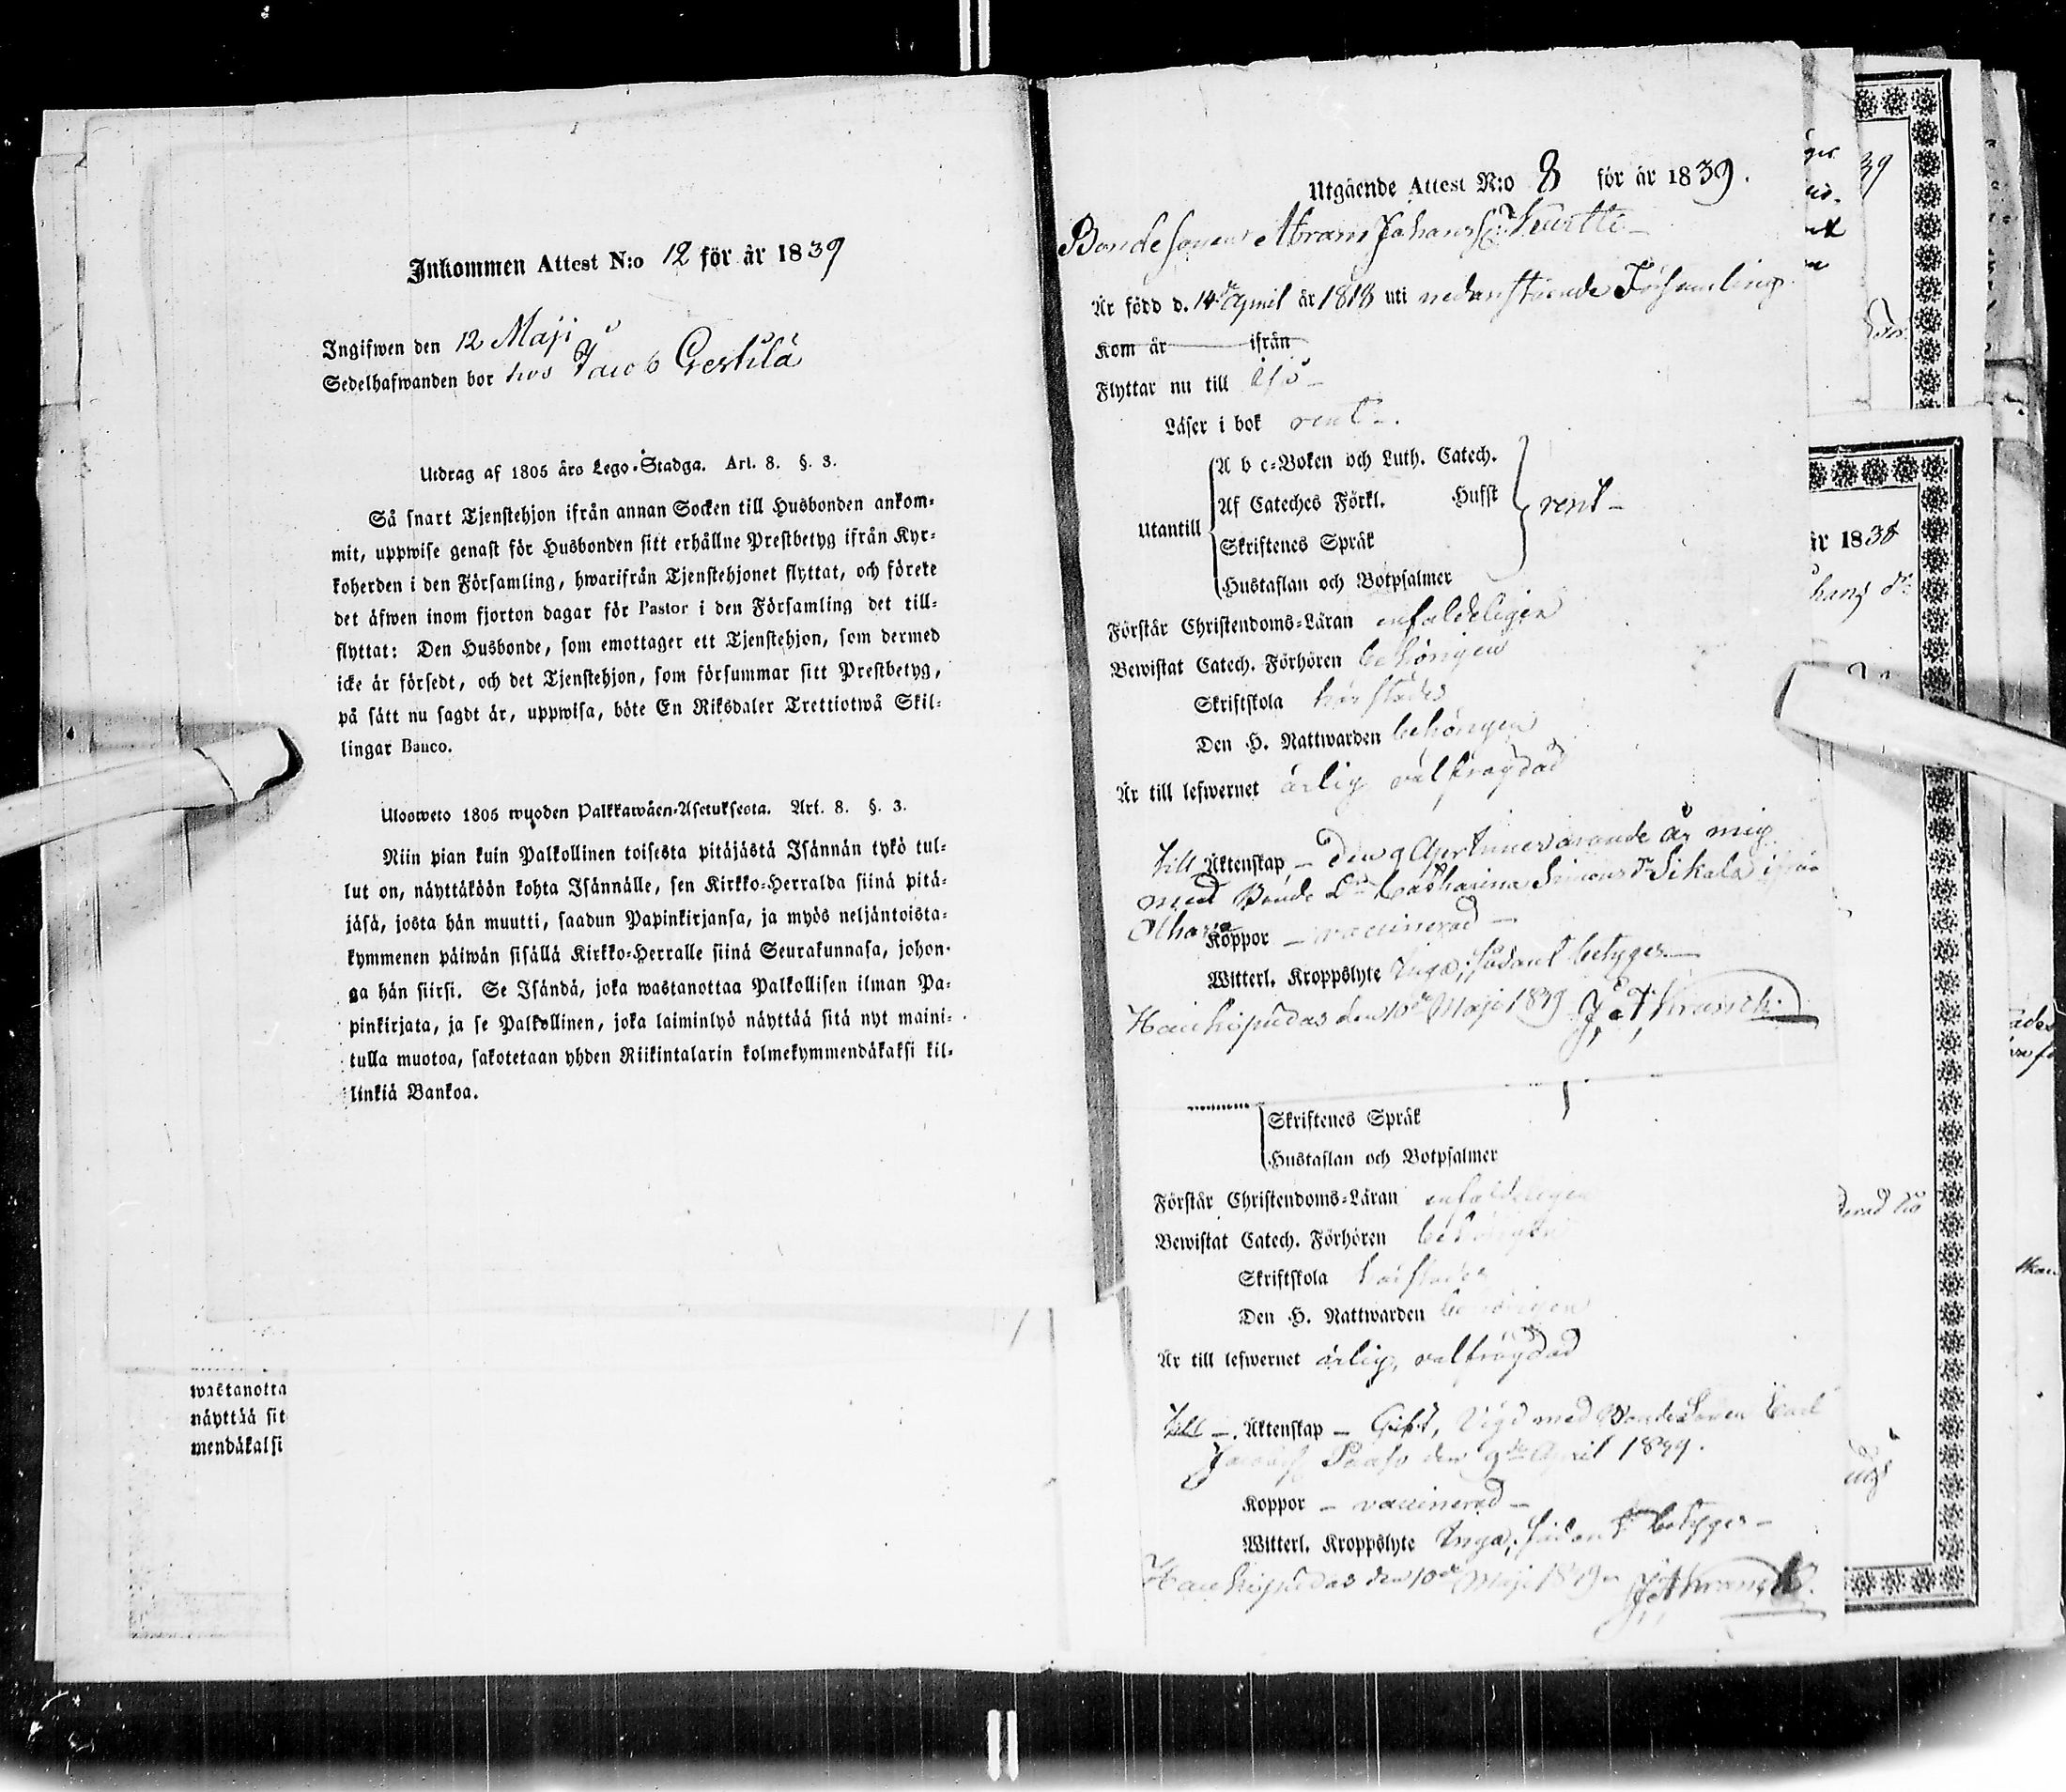 Inkommen Attest N:o 12 för år 1839
Ingifwen den 12 Maji
Sedelhafwanden bor hos Jacob Gestilä
Utdrag af 1805 års Lego-Stadga. Art. 8. §. 3.
Så snart Tjenstehjon ifrån annan Socken till Husbonden ankom-
mit, uppwise genast för Husbonden sitt erhållne Prestbetyg ifrån Kyr-
koherden i den Församling, hwarifrån Tjenstehjonet flyttat, och förete
det äfwen inom fjorton dagar för Pastor i den Församling det till-
flyttat: Den Husbonde, som emottager ett Tjenstehjon, som dermed
icke är försedt, och det Tjenstehjon, som försummar sitt Prestbetyg,
på sätt nu sagdt är, uppwisa, böte En Riksdaler Trettiotwå Skil-
lingar Banco.
Ulosweto 1805 wuoden Palkkawäen-Asetuksesta. Art. 8. §. 3.
Niin pian kuin Palkollinen toisesta pitäjästä Isännän tykö tul-
lut on, näyttäköön kohta Isännälle, sen Kirkko-Herralda siinä pitä-
jäsä, josta hän muutti, saadun Papinkirjansa, ja myös neljäntoista-
kymmenen päiwän sisällä Kirkko-Herralle siinä Seurakunnasa, johon-
ga hän siirsi. Se Isändä, joka wastanottaa Palkollisen ilman Pa-
pinkirjata, ja se Palkollinen, joka laiminlyö näyttää sitä nyt maini-
tulla muotoa, sakotetaan yhden Riikintalarin kolmekymmendäkaksi kil-
linkiä Bankoa.
wastanotta
näyttää sit
mendäkaksi
Utgående Attest N:o 8 för år 1839.
Bondesonen Abram Johanss: Kurtti
Är född d. 14de April år 1818 uti nedanstående Församling.
Kom år ifrån
Flyttar nu till
Läser i bok rent
Utantill
A b c-Boken och Luth. Catech.
Af Cateches Förkl. Husst rent
Skriftenes Språk
Hustaflan och Botpsalmer
Förstår Christendoms-Läran enfaldeligen
Bewistat Catech. Förhören behörigen
Skriftskola härstädes
Den H. Nattwarden behörigen
Är till lefwernet ärlig välfrägdad
till Äktenskap Den 9 April innevarande år
med Bonde Dr Catharina Simons dr Sikala ifrån
Koppor vaccinerad
Witterl. Kroppslyte Inga; sådant betygar
Haukipudas den 10de Maji 1839
Skriftenes Språk
Hustaflan och Botpsalmer
Förstår Christendoms-Läran enfaldeligen
Bewistat Catech. Förhören behörigen
Skriftskola härstädes
Den H. Nattwarden behörigen
Är till lefwernet ärlig, välfrägdad
till Äktenskap Gift, Vigd med Bonde Sonen Carl
Jacobss Paaso den 9de April 1839.
Koppor vaccinerad
Witterl. Kroppslyte Inga; sådant betygar
Haukipudas den 10de Maji 1839
39
år 1838